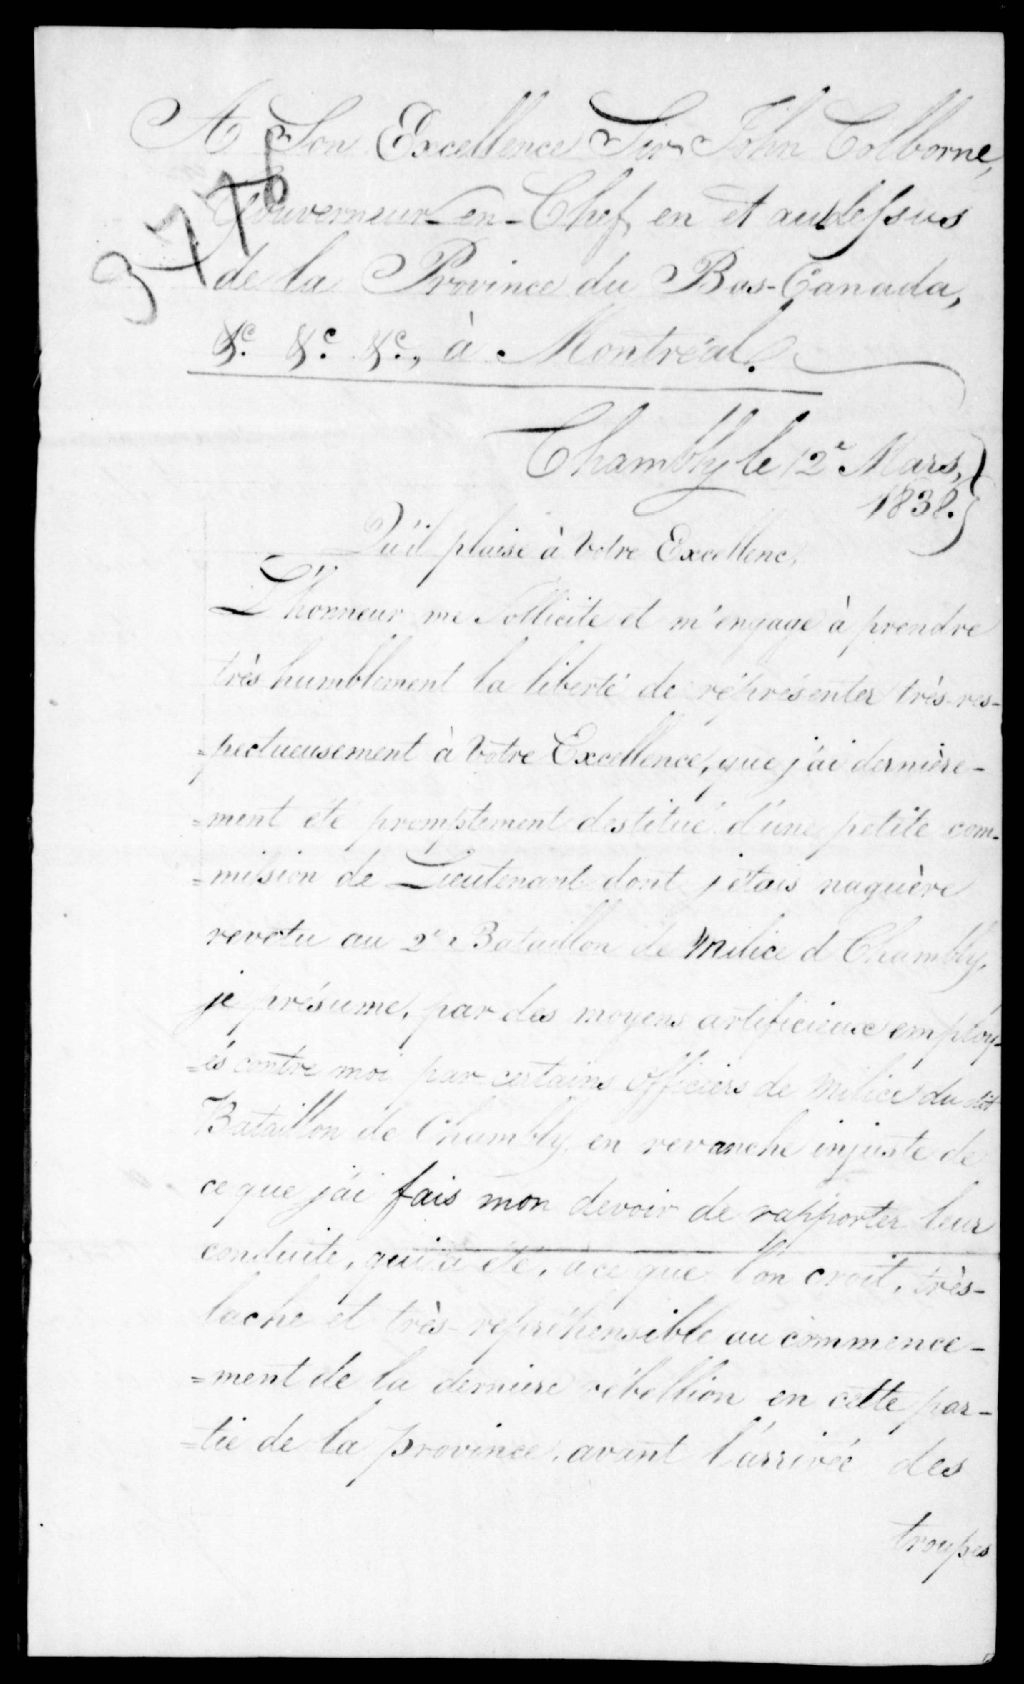 A Son Excellence Sir John Colborne,
3776
Gouverneur-en-Chef, en et audessus
de la Province du Bas-Canada,
&c. &c. &c., à Montréal.
Chambly le 12e Mars,
1838.
Qu'il plaise à Votre Excellenc,
L'honneur me sollicite et m'engage à prendre
très humblement la liberté de réprésenter très-res-
=pectueusement à Votre Excellence, que j'ai dernière-
=ment eté promptement destitué d'une petite com-
=mission de Lieutenant dont j'étais naguère
revetu au 2e Bataillon de Milice d Chambly,
je présume, par des moyens artificieux employ-
=és contre moi par certains Officiers de Milice du dit
Bataillon de Chambly, en revanche injuste de
ce que j'ai fais mon devoir de rapporter leur
conduite, qui a été, à ce que l'on croit, très-
lache et très-repréhensible au commence-
=ment de la derniere rébellion en cette par-
=tie de la province, avant l'arrivée des
troupes